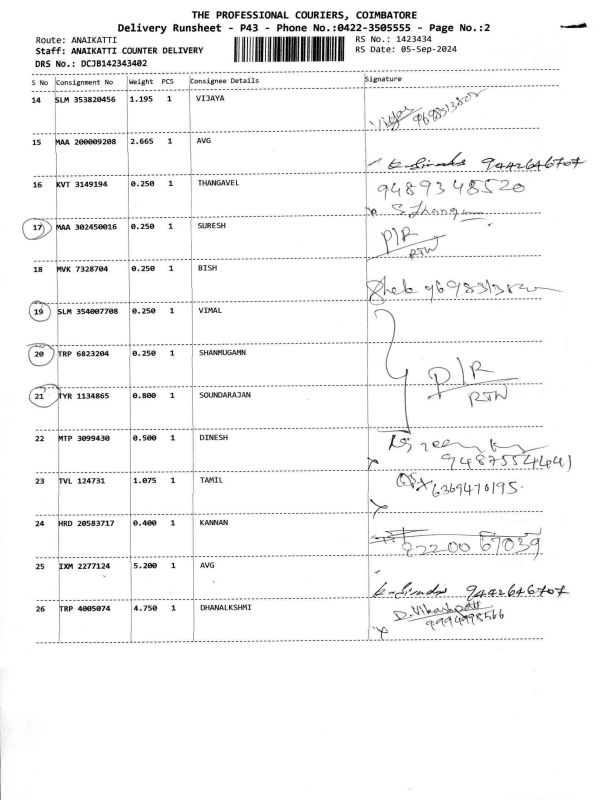 THE PROFESSIONAL COURIERS, COIMBATORE
Delivery Runsheet - P43 - Phone No.:0422-3505555 - Page No.:2
Route: ANAIKATTI
RS No.: 1423434
Staff: ANAIKATTI COUNTER DELIVERY
RS Date: 05-Sep-2024
DRS No.: DCJB142343402
S No Consignment No Weight PCS Consignee Details Signature
14 SLM 353820456 1.195 1 VIJAYA
15 MAA 200009208 2.665 1 AVG
9442646707
16 KVT 3149194 0.250 1 THANGAVEL 9489348520
17 MAA 302450016 0.250 1 SURESH P/R
RTN
18 MVK 7328704 0.250 1 BISH
19 SLM 354007708 0.250 1 VIMAL
20 TRP 6823204 0.250 1 SHANMUGAMN
P/R
RTN
21 TYR 1134865 0.800 1 SOUNDARAJAN
22 MTP 3099430 0.500 1 DINESH
9487554441
23 TVL 124731 1.075 1 TAMIL 6369470195
24 HRD 20583717 0.400 1 KANNAN
8220067039
25 IXM 2277124 5.200 1 AVG
9442646707
26 TRP 4005074 4.750 1 DHANALKSHMI
9994998566